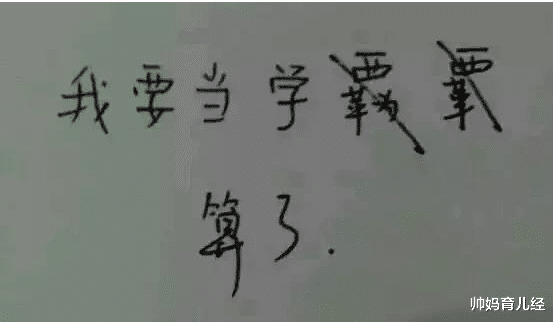 我要当学
算了.
帅妈育儿经